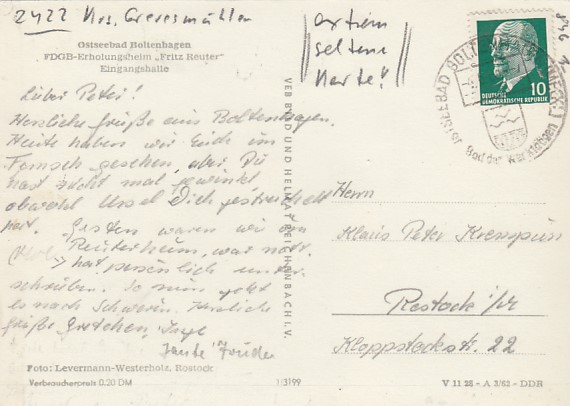 2422 Krs. Grevesmühlen
extrem
seltene
Karte!
Ostseebad Boltenhagen
FDGB-Erholungsheim „Fritz Reuter"
Eingangshalle
DEUTSCHE
DEMOKRATISCHE REPUBLIK
10
OSTSEEBAD BOLTENHAGEN
Bad der Werktätigen
VEB BILD UND HEIMAT REICHENBACH I. V.
Lieber Peter!
Herzliche Grüße aus Boltenhagen.
Heute haben wir Euch im
Fernseh gesehen, aber Du
hast nicht mal gewinkt
obwohl Ursel Dich gestreichelt
hat. Gestern waren wir im
Reuterheim, war nett.
hat persönlich unter-
schrieben. So nun geht
es nach Schwerin. Herzliche
Grüße Gretchen, Inge
Tante Friedel
Herrn
Klaus Peter
Rostock
Klopstockstr. 22
Foto: Levermann-Westerholz, Rostock
Verbraucherpreis 0,20 DM
1/3199
V 11 28 - A 3/62 - DDR